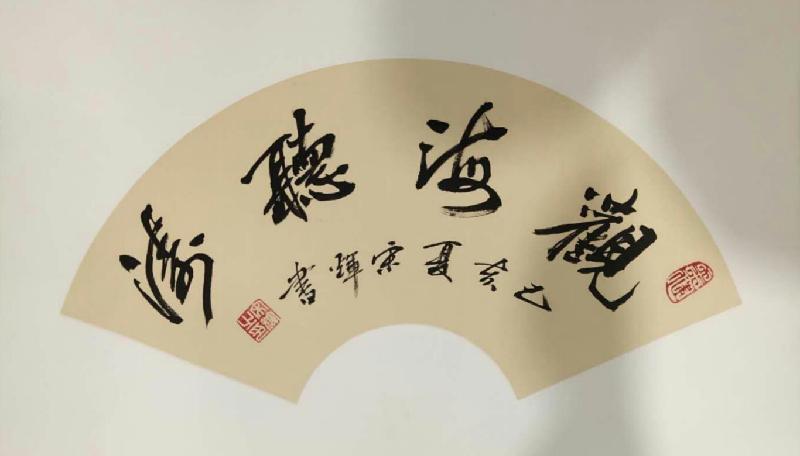 觀海聽濤
己亥夏宗輝書